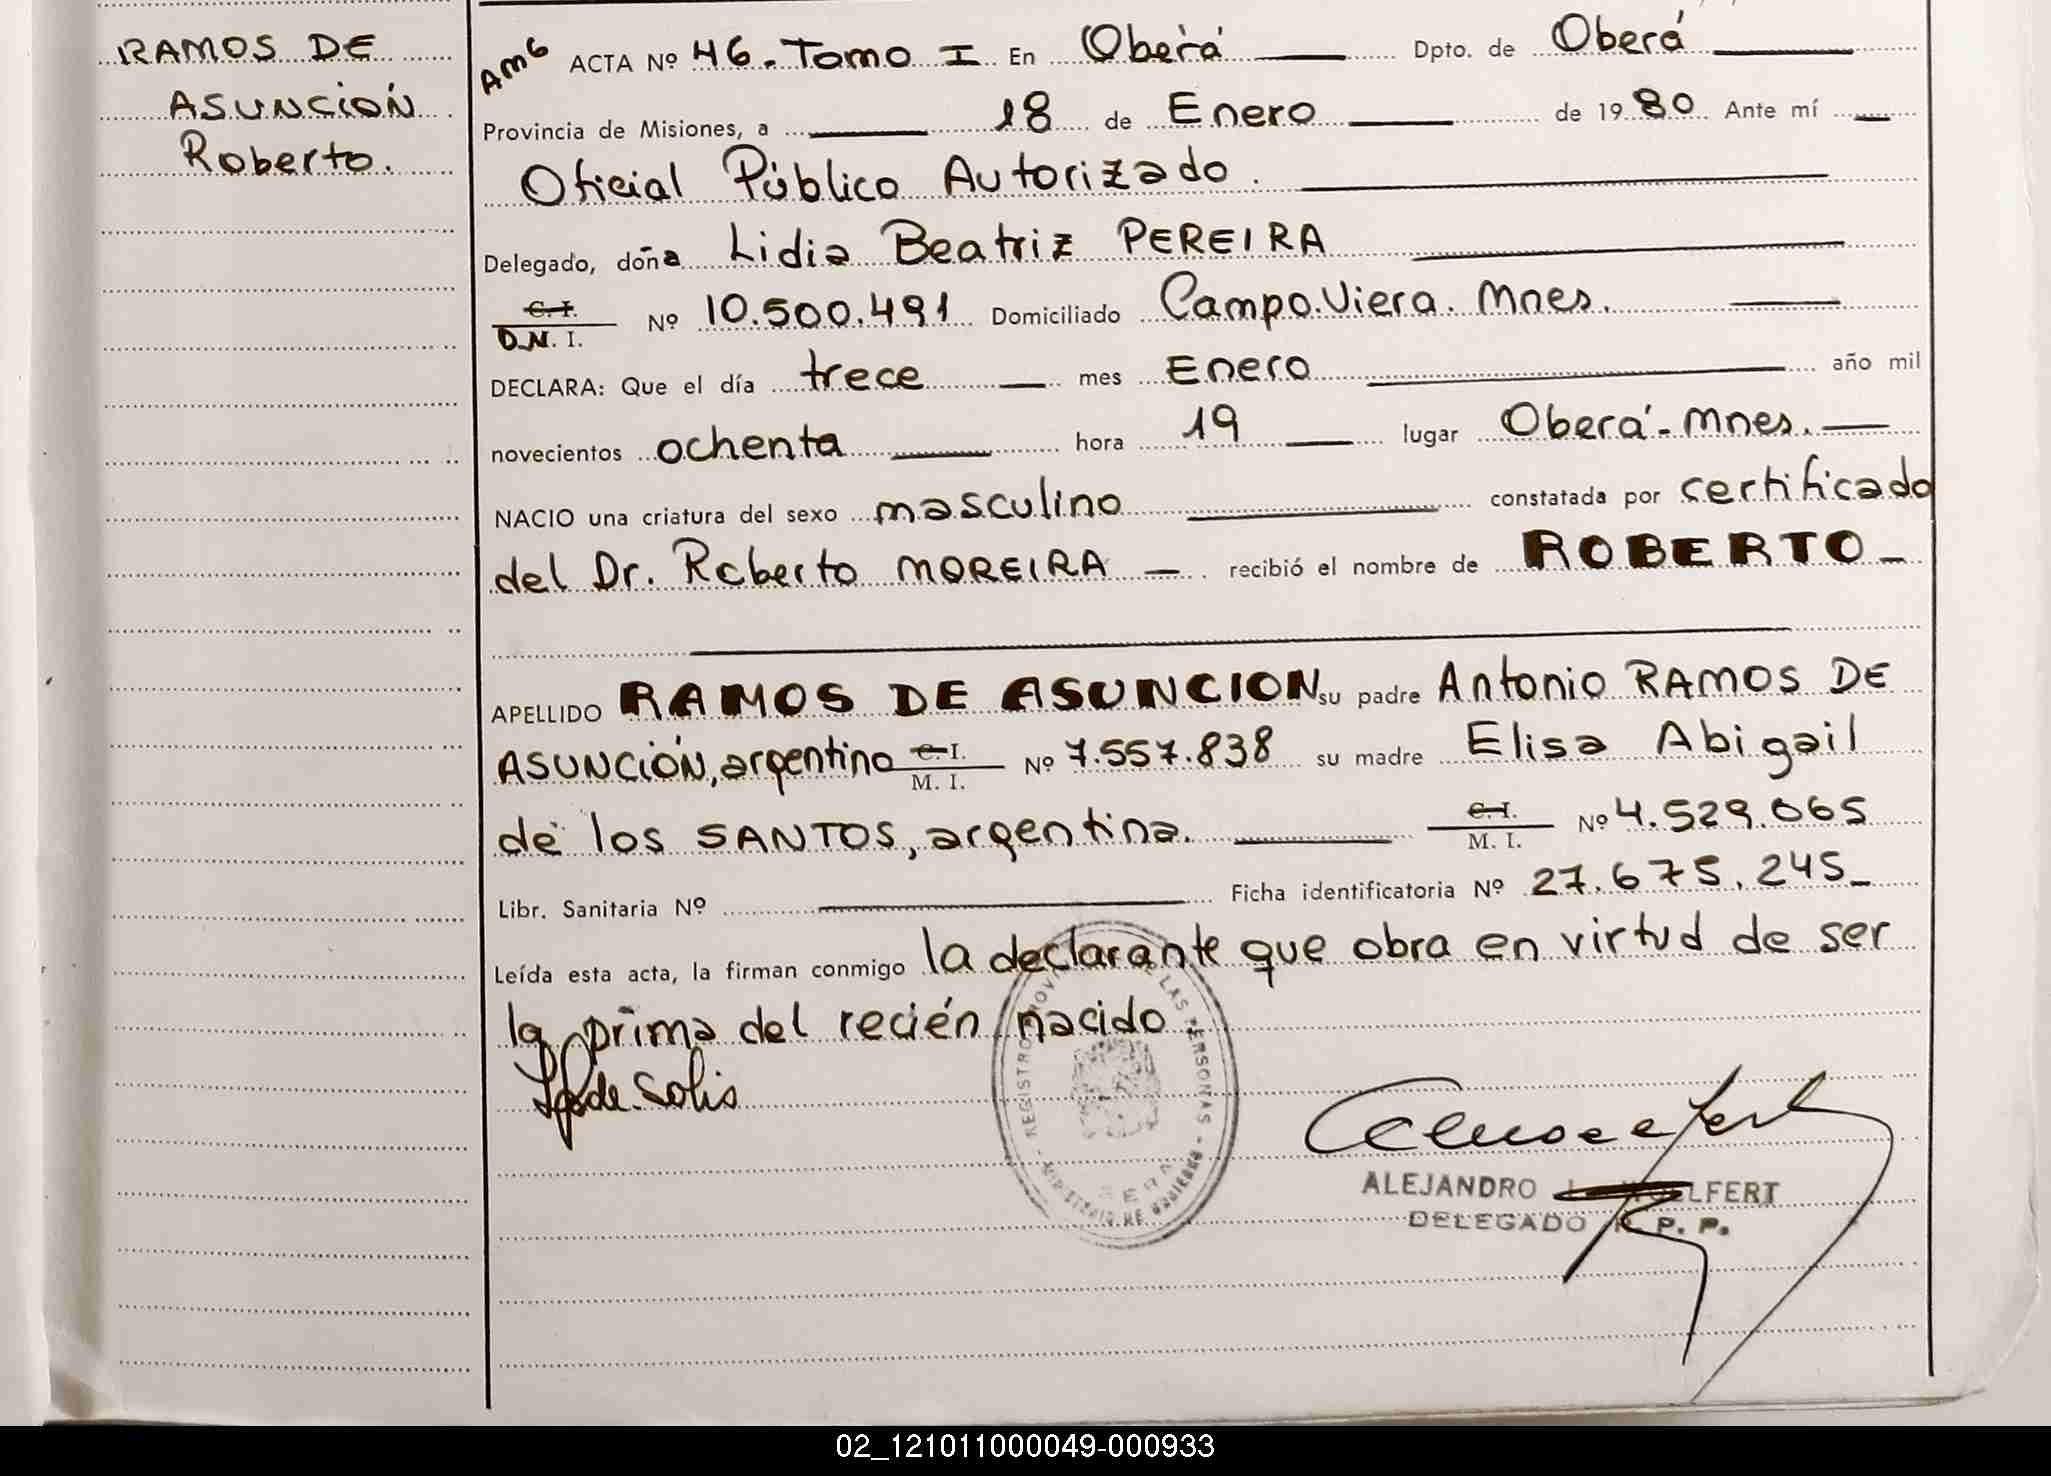 RAMOS DE
ASUNCIÓN
Roberto.
AmG ACTA Nº 46. Tomo I En Oberá Dpto. de Oberá
Provincia de Misiones, a 18 de Enero de 1980 Ante mí
Oficial Público Autorizado.
Delegado, doña Lidia Beatriz PEREIRA
C. I.
D.N. I. Nº 10.500.491 Domiciliado Campo Viera. Mnes.
DECLARA: Que el día trece mes Enero año mil
novecientos ochenta hora 19 lugar Oberá-Mnes.
NACIO una criatura del sexo masculino constatada por certificado
del Dr. Roberto MOREIRA recibió el nombre de ROBERTO
APELLIDO RAMOS DE ASUNCION su padre Antonio RAMOS DE
ASUNCIÓN, argentino C. I. / M. I. Nº 7.557.838 su madre Elisa Abigail
de los SANTOS, argentina. C. I. / M. I. Nº 4.529.065
Libr. Sanitaria Nº Ficha identificatoria Nº 27.675.245
Leída esta acta, la firman conmigo la declarante que obra en virtud de ser
la prima del recién nacido.
de Solis
REGISTRO PROV LAS PERSONAS
MINISTERIO DE GOBIERNO
ALEJANDRO
DELEGADO R. P. P.
02_121011000049-000933